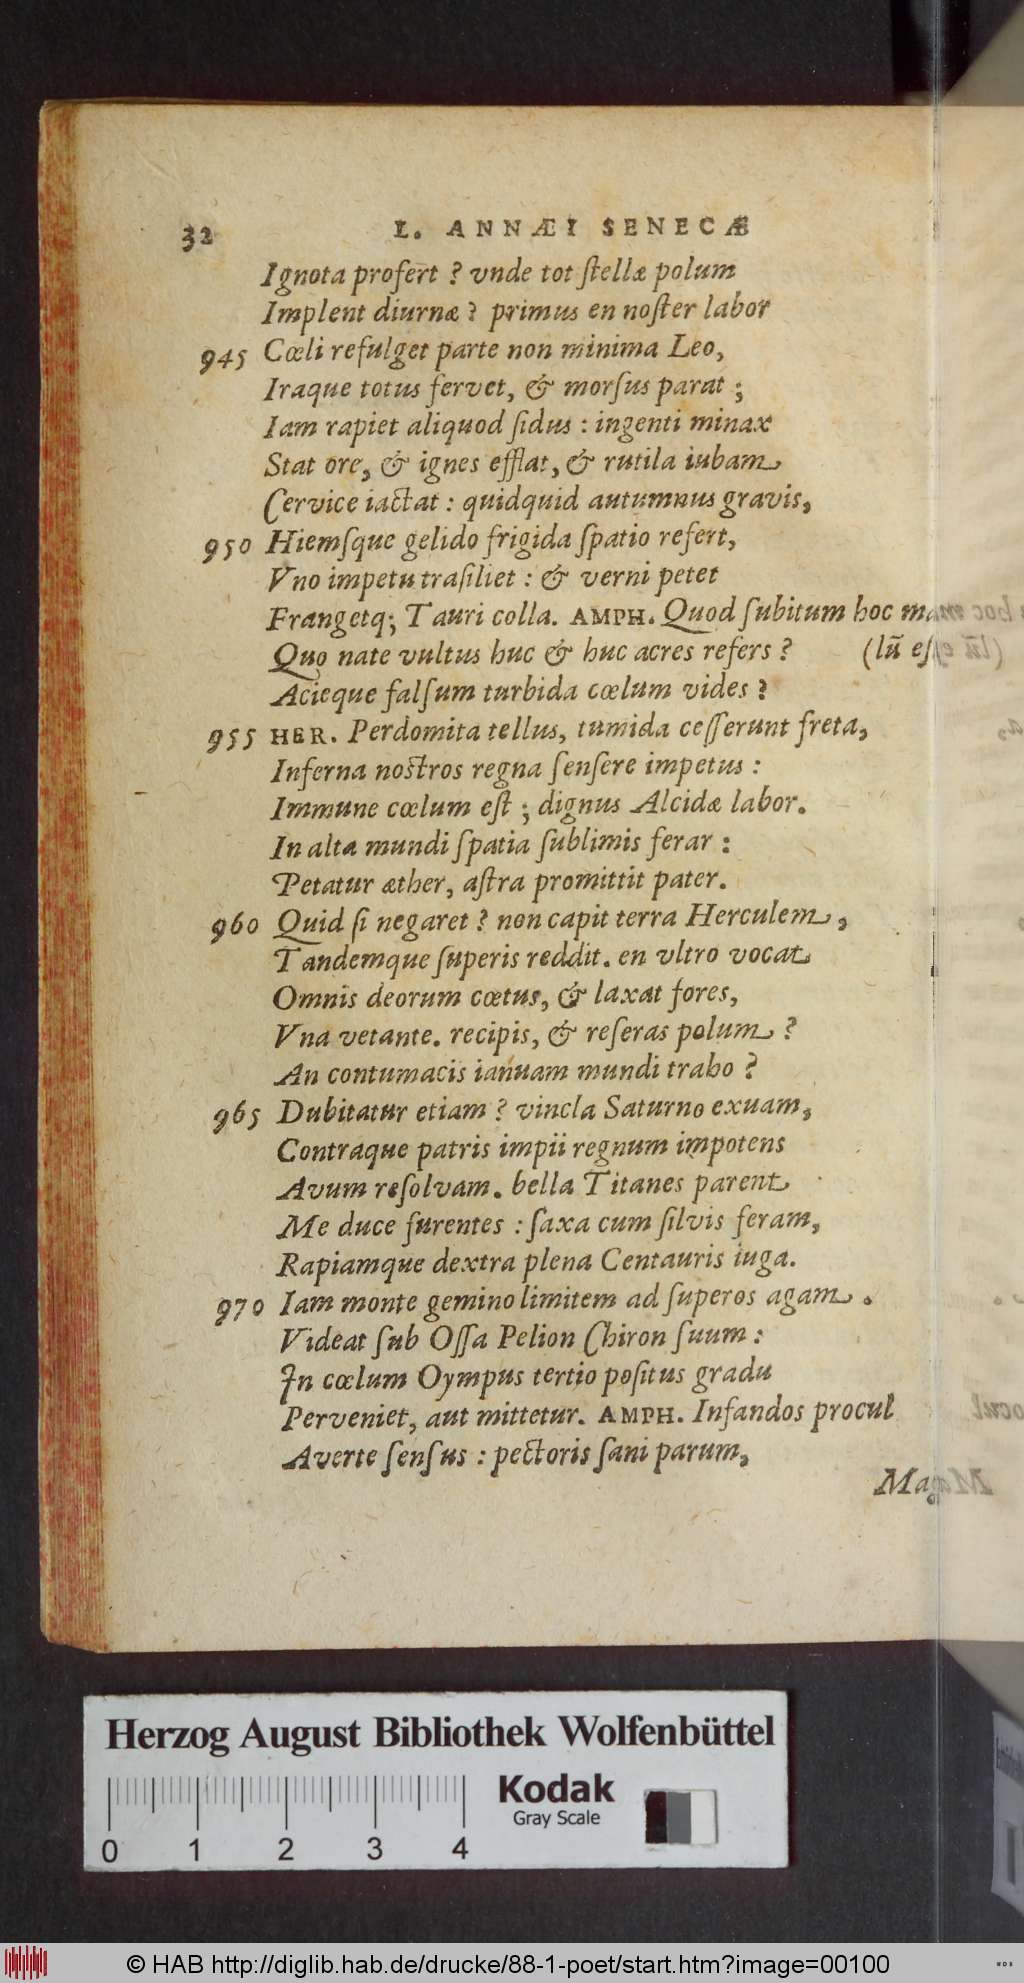 32 L. ANNÆI SENECÆ
Ignota profert ? vnde tot ſtellæ polum
Implent diurnæ ? primus en noſter labor
945 Cœli refulget parte non minima Leo,
Iraque totus fervet, & morſus parat ;
Iam rapiet aliquod ſidus : ingenti minax
Stat ore, & ignes efflat, & rutila iubam
Cervice iactat : quidquid autumnus gravis,
950 Hiemſque gelido frigida ſpatio refert,
Vno impetu traſiliet : & verni petet
Frangetq; Tauri colla. AMPH. Quod ſubitum hoc ma
Quo nate vultus huc & huc acres refers ? (lũ eſ
Acieque falſum turbida cœlum vides ?
955 HER. Perdomita tellus, tumida ceſſerunt freta,
Inferna noſtros regna ſenſere impetus :
Immune cœlum eſt ; dignus Alcidæ labor.
In alta mundi ſpatia ſublimis ferar :
Petatur æther, aſtra promittit pater.
960 Quid ſi negaret ? non capit terra Herculem,
Tandemque ſuperis reddit. en vltro vocat
Omnis deorum cœtus, & laxat fores,
Vna vetante. recipis, & reſeras polum ?
An contumacis ianuam mundi traho ?
965 Dubitatur etiam ? vincla Saturno exuam,
Contraque patris impii regnum impotens
Avum reſolvam. bella Titanes parent
Me duce furentes : ſaxa cum ſilvis feram,
Rapiamque dextra plena Centauris iuga.
970 Iam monte gemino limitem ad ſuperos agam.
Videat ſub Oſſa Pelion Chiron ſuum :
In cœlum Oympus tertio poſitus gradu
Perveniet, aut mittetur. AMPH. Infandos procul
Averte ſenſus : pectoris ſani parum,
Mag
Herzog August Bibliothek Wolfenbüttel
Kodak
Gray Scale
0 1 2 3 4
© HAB http://diglib.hab.de/drucke/88-1-poet/start.htm?image=00100